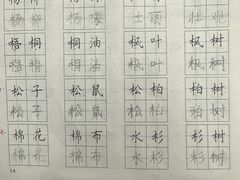 杨柳 杨 壮观
杨柳 杨 壮观
梧桐 桐油 枫叶 枫树
梧桐 桐油 枫叶 枫树
松子 松鼠 松柏 柏树
松子 松鼠 松柏 柏树
棉花 棉布 水杉 杉树
棉花 棉布 水杉 杉树
54